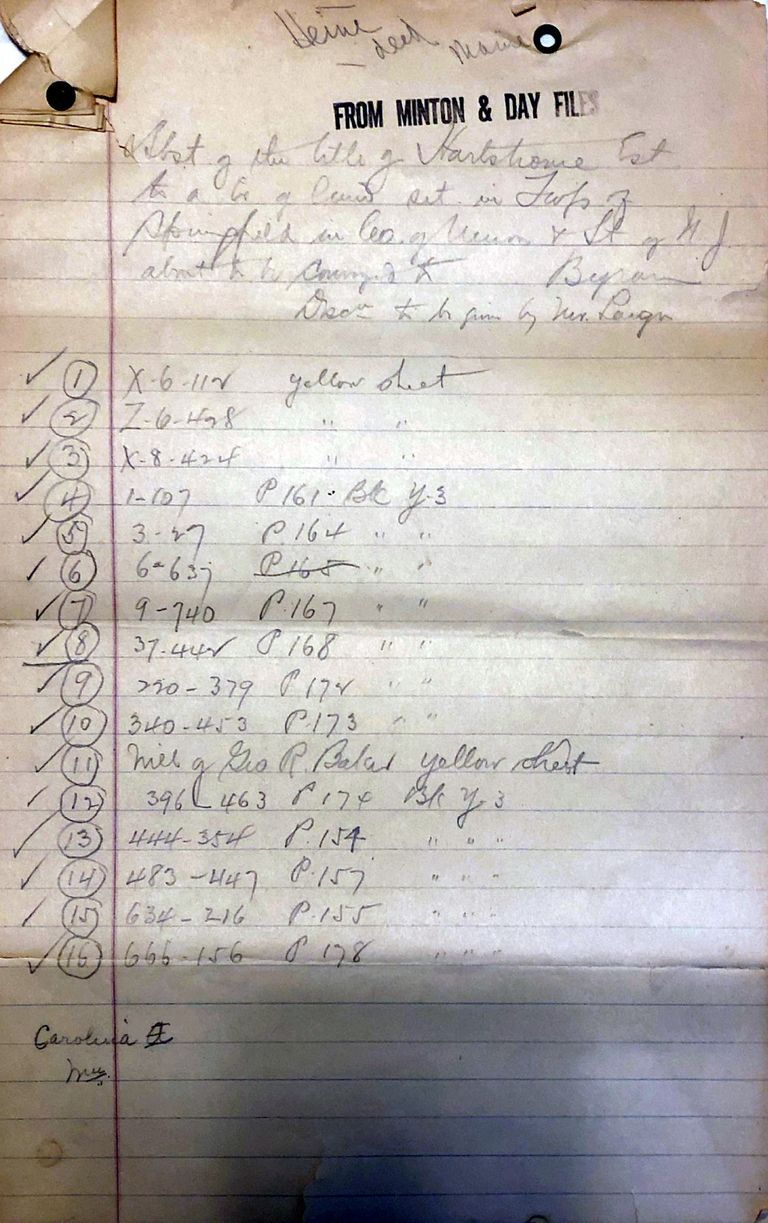 Heine
deed
FROM MINTON & DAY FILES
Abst of the title of Hartshorne Est
to a tr of land sit. in Twp of
Springfield in Co. of Union & St of N J
about to be conveyed to Byram
Descn to be given by Mr.
✓ 1 X-6-112 yellow sheet
✓ 2 Z-6-428 " "
✓ 3 X-8-424 " "
✓ 4 1-107 P 161. Bk Y-3
✓ 5 3-27 P. 164 " "
✓ 6 6-637 P 165 " "
✓ 7 9-740 P. 167 " "
✓ 8 37-442 P 168 " "
✓ 9 220-379 P 172 " "
✓ 10 340-453 P. 173 " "
✓ 11 Will of Geo R. Baker yellow sheet
✓ 12 396-463 P 174 Bk Y-3
✓ 13 444-354 P. 154 " " "
✓ 14 483-447 P. 157 " " "
✓ 15 634-216 P. 155 " " "
✓ 16 666-156 P 178 " " "
Carolina E